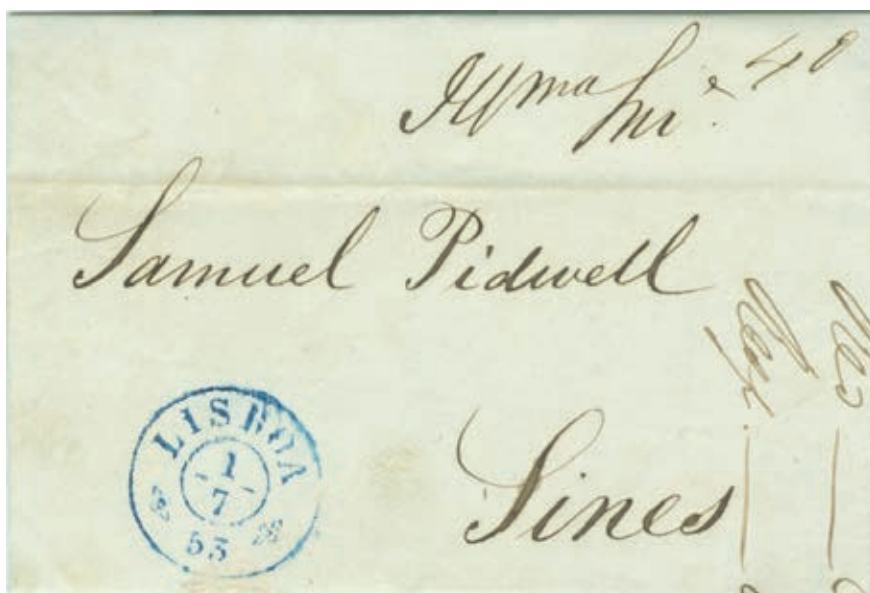 Illmo Snr.
Samuel Pidwell
Sines
LISBOA
1
7
53